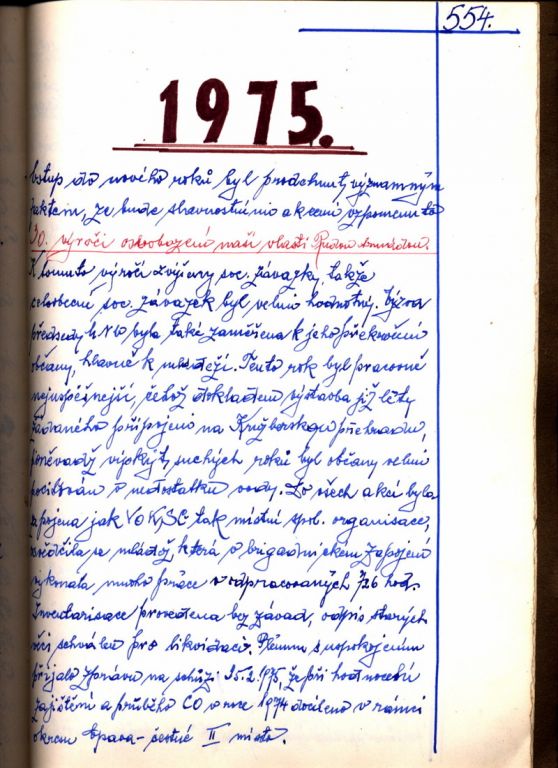 554.
1975.
Vstup do nového roku byl prodchnut významným
faktem, že bude slavnostními akcemi vzpomenuto
30. výročí osvobození naší vlasti Rudou armádou.
K tomuto výročí zvýšeny soc. závazky, takže
celoobecní soc. závazek byl velmi hodnotný. Výzva
předsedy MNV byla také zaměřena k jeho překročení
občany, hlavně k mládeži. Tento rok byl pracovně
nejúspěšnější, čehož dokladem výstavba již léty
žádaného připojení na Kružberskou přehradu,
poněvadž výskyt suchých roků byl občany velmi
pociťován v nedostatku vody. Do všech akcí byla
zapojena jak VO KSČ tak místní spol. organisace,
osvědčila se mládež, která v brigadnickém zapojení
vykonala mnoho práce v odpracovaných 726 hod.
Inventarisace provedena bez závad, odpis starých
věcí schválen pro likvidaci. Plénum s uspokojením
přijalo zprávu na schůzi 25.2.1975, že při hodnocení
zajištění a průběhu CO v roce 1974 docíleno v rámci
okresu Opava - čestné II místo.